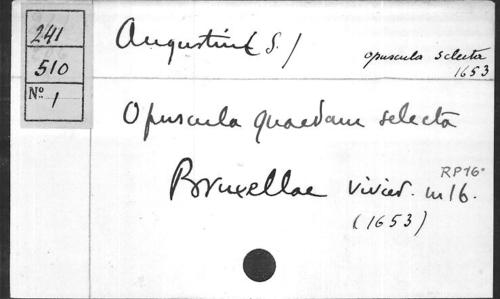 241
510
Nº 1
Augustin (S.)
opuscula selecta
1653
Opuscula quaedam selecta
RP16
Bruxellae Vivier. in 16.
(1653)